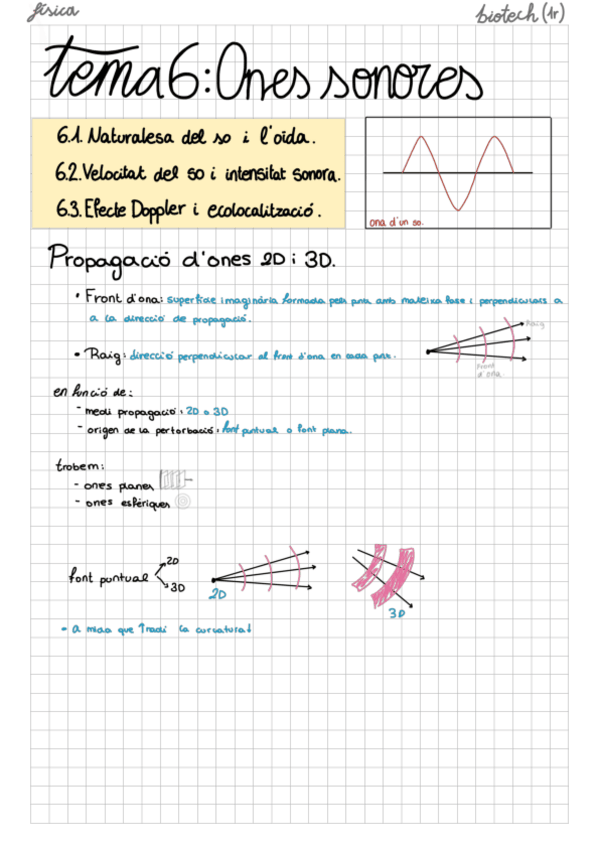 física
biotech (1r)
tema 6: Ones sonores
6.1. Naturalesa del so i l'oïda.
6.2. Velocitat del so i intensitat sonora.
6.3. Efecte Doppler i ecolocalització.
ona d'un so.
Propagació d'ones 2D i 3D.
• Front d'ona: superfície imaginària formada pels punts amb mateixa fase i perpendiculars a
a la direcció de propagació.
Raig
• Raig: direcció perpendicular al front d'ona en cada punt.
Front
d'ona
en funció de:
- medi propagació: 2D o 3D
- origen de la pertorbació: font puntual o font plana.
trobem:
- ones planes
- ones esfèriques
font puntual
2D
3D
2D
3D
- a mida que ↑radi la curvatura↓